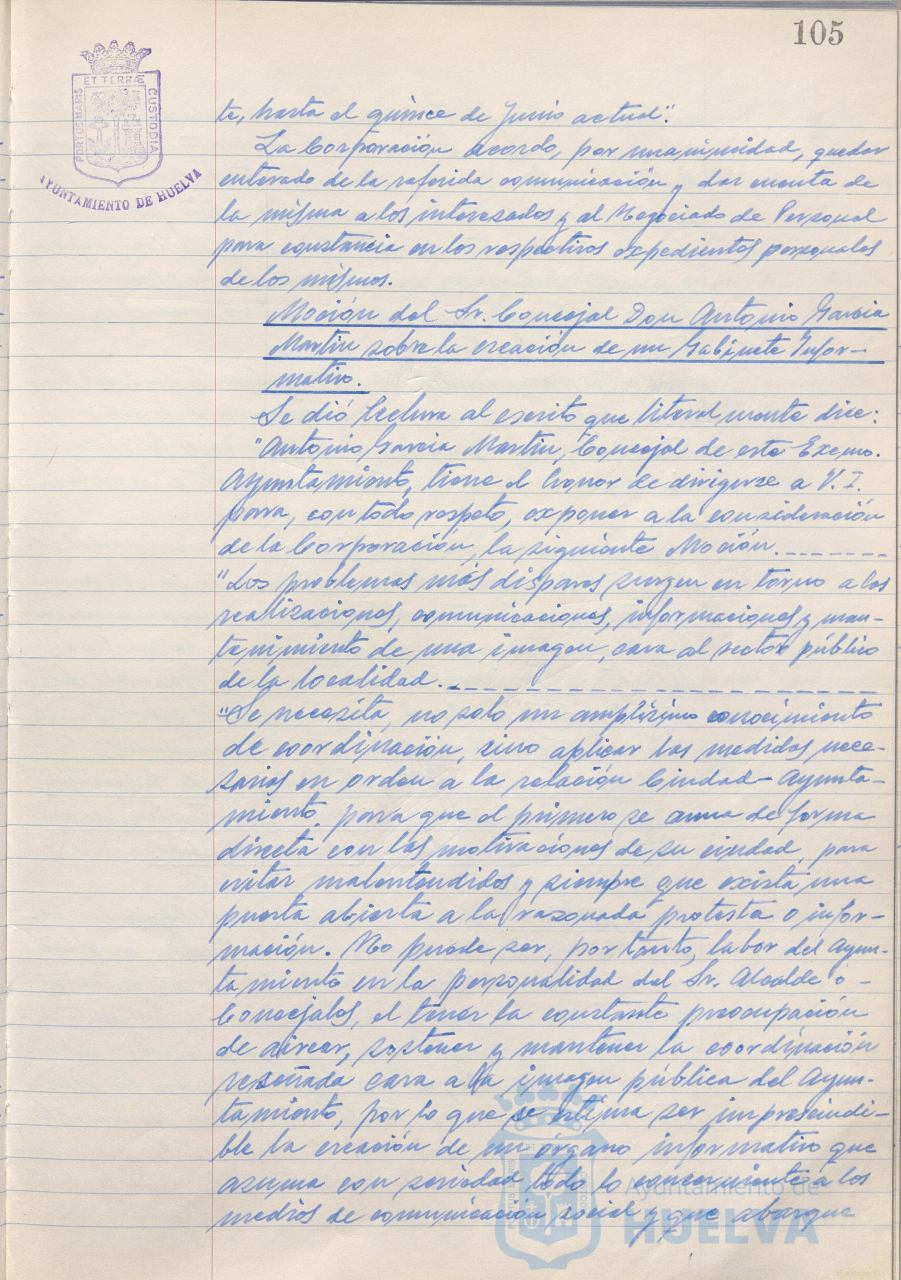 105
PORTUS MARIS ET TERRÆ CUSTODIA
AYUNTAMIENTO DE HUELVA
te, hasta el quince de Junio actual".
La Corporación acordó, por unanimidad, quedar
enterado de la referida comunicación y dar cuenta de
la misma a los interesados y al Negociado de Personal
para constancia en los respectivos expedientes personales
de los mismos.
Moción del Sr. Concejal Don Antonio Garcia
Martin sobre la creación de un Gabinete Infor-
mativo.
Se dió lectura al escrito que literalmente dice:
"Antonio Garcia Martin, Concejal de este Excmo.
Ayuntamiento, tiene el honor de dirigirse a V. I.
para, con todo respeto, exponer a la consideración
de la Corporación, la siguiente Moción.
"Los problemas más dispares surgen en torno a las
realizaciones, comunicaciones, informaciones y man-
tenimiento de una imagen, cara al sector público
de la localidad.
"Se necesita, no solo un amplísimo conocimiento
de coordinación, sino aplicar las medidas nece-
sarias en orden a la relación Ciudad-Ayunta-
miento, para que el primero se una de forma
directa con las motivaciones de su ciudad, para
evitar malentendidos y siempre que exista una
puerta abierta a la razonada protesta o infor-
mación. No puede ser, por tanto, labor del Ayun-
tamiento en la personalidad del Sr. Alcalde o-
Concejales, el tener la constante preocupación
de airear, sostener y mantener la coordinación
reseñada cara a la imagen pública del Ayun-
tamiento, por lo que se estima ser imprescindi-
ble la creación de un órgano informativo que
asuma con seriedad todo lo concerniente a los
medios de comunicación social y que abarque
Ayuntamiento de
HUELVA